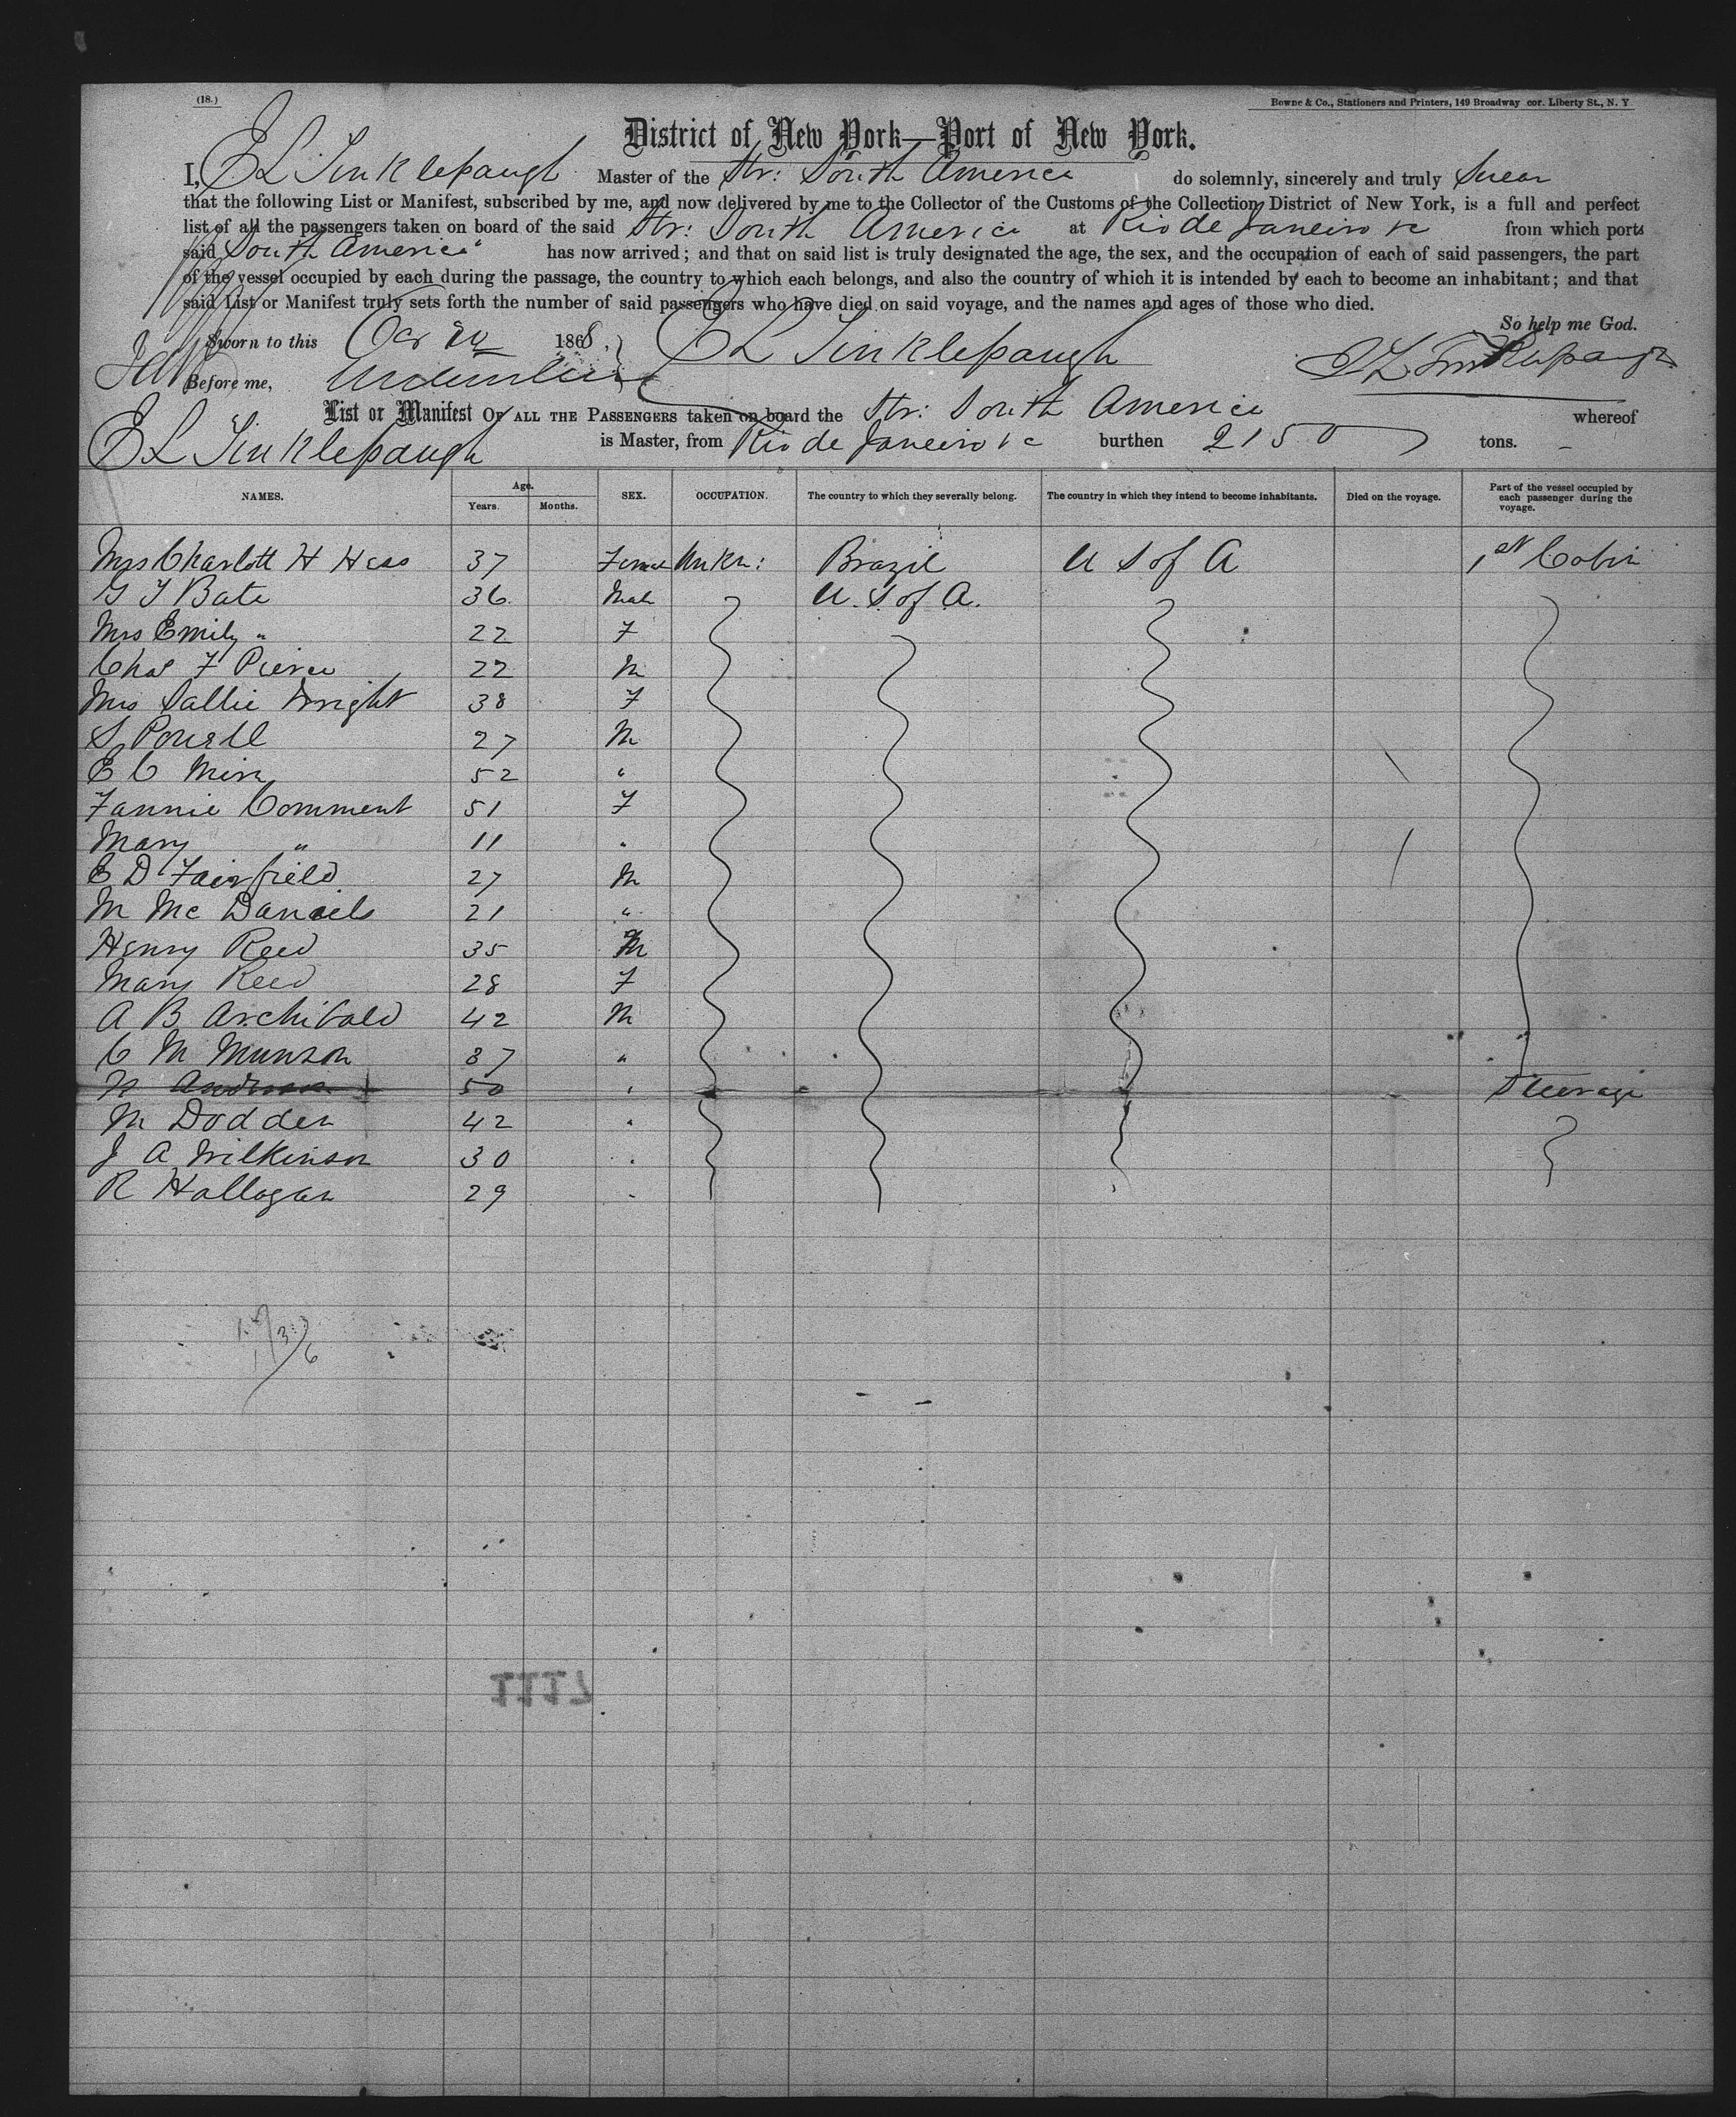 (18.)
Bowne & Co., Stationers and Printers, 149 Broadway cor. Liberty St., N. Y
District of New York—Port of New York.
I, E L Tinklepaugh Master of the Str: South America do solemnly, sincerely and truly Swear
that the following List or Manifest, subscribed by me, and now delivered by me to the Collector of the Customs of the Collection District of New York, is a full and perfect
list of all the passengers taken on board of the said Str: South America at Rio de Janeiro &c from which ports
said South America has now arrived; and that on said list is truly designated the age, the sex, and the occupation of each of said passengers, the part
of the vessel occupied by each during the passage, the country to which each belongs, and also the country of which it is intended by each to become an inhabitant; and that
said List or Manifest truly sets forth the number of said passengers who have died on said voyage, and the names and ages of those who died.
So help me God.
Sworn to this Oct 1868. E L Tinklepaugh E L Tinklepaugh
Before me,
List or Manifest OF ALL THE PASSENGERS taken on board the Str: South America whereof
E L Tinklepaugh is Master, from Rio de Janeiro &c burthen 2150 tons.
NAMES. Age. Years. Months. SEX. OCCUPATION. The country to which they severally belong. The country in which they intend to become inhabitants. Died on the voyage. Part of the vessel occupied by each passenger during the voyage.
Mrs Charlott H Hess 37 Female Unkn: Brazil U S of A 1st Cabin
G F Bate 36 Male U. S of A.
Mrs Emily " 22 F
Chas F Pierce 22 M
Mrs Sallie Wright 38 F
S Powell 27 M
E C 52 "
Fannie Comment 51 F
Mary " 11 "
E D Fairfield 27 M
M Mc Daniels 21 "
Henry Reed 35 M
Mary Reed 28 F
A B Archibald 42 M
C M Munson 37 "
N Andrson 50 " Steerage
M Dodden 42 "
J A Wilkinson 30 "
R Hallogan 29 "
1117